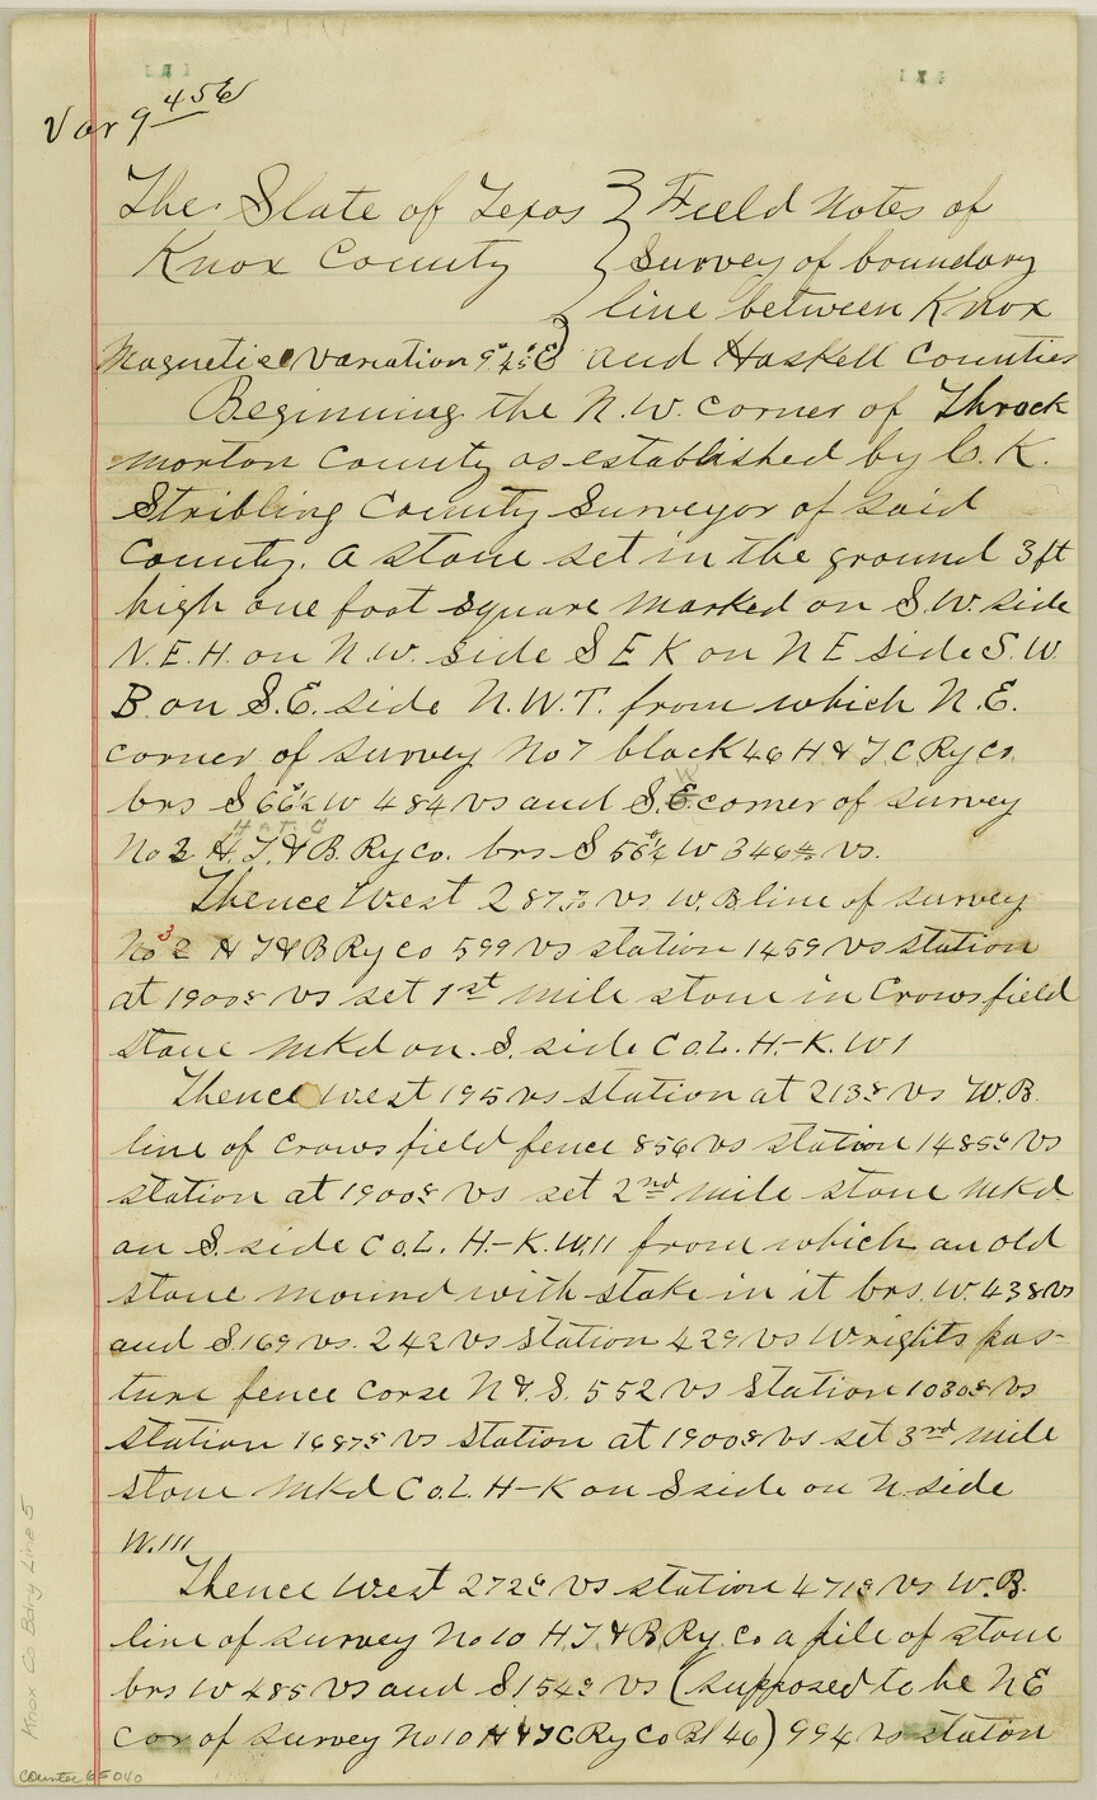 Var 9 45 E
The State of Texas } Field Notes of
Knox County } Survey of boundary
line between Knox
Magnetice Variation 9° 45' E and Haskell Counties
Beginning the N.W. corner of Throck
morton County as established by C. K.
Stribling County Surveyor of said
County. a stone set in the ground 3 ft
high one foot square marked on S.W. side
N.E.H. on N.W. side S E K on N E side S.W.
B. on S.E. side N.W.T. from which N.E.
corner of survey No 7 block 46 H & T.C. Ry Co.
brs S 66½° W 484 vs and S.W. corner of survey
No 2 H. T. & B. Ry Co. brs S 56½° W 346 vs.
Thence West 287 vs W.B. line of survey
No 3 H T & B Ry Co 599 vs station 1459 vs station
at 1900⁸ vs set 1st mile stone in Crows field
stone mkd on S. side Co.L. H.-K. W 1
Thence West 195 vs station at 213⁸ vs W.B.
line of Crows field fence 856 vs station 1485⁶ vs
station at 1900⁸ vs set 2nd mile stone mkd
on S. side Co.L. H.-K. W.11 from which an old
stone mound with stake in it brs. W. 438 vs
and S. 169 vs. 242 vs station 429 vs Wrights pas-
ture fence corse N & S. 552 vs station 1030⁸ vs
station 1687⁵ vs station at 1900⁸ vs set 3rd mile
stone mkd Co.L. H-K on S side on N. side
W.111
Thence West 272⁸ vs station 471⁸ vs W.B.
line of survey No 10 H.T. & B Ry. Co a pile of stone
brs W 485 vs and S 154² vs (supposed to be N E
Cor of survey No 10 H & T C Ry Co Bl 46) 994 vs station
Knox Co Bdry Line 5
counter 65040